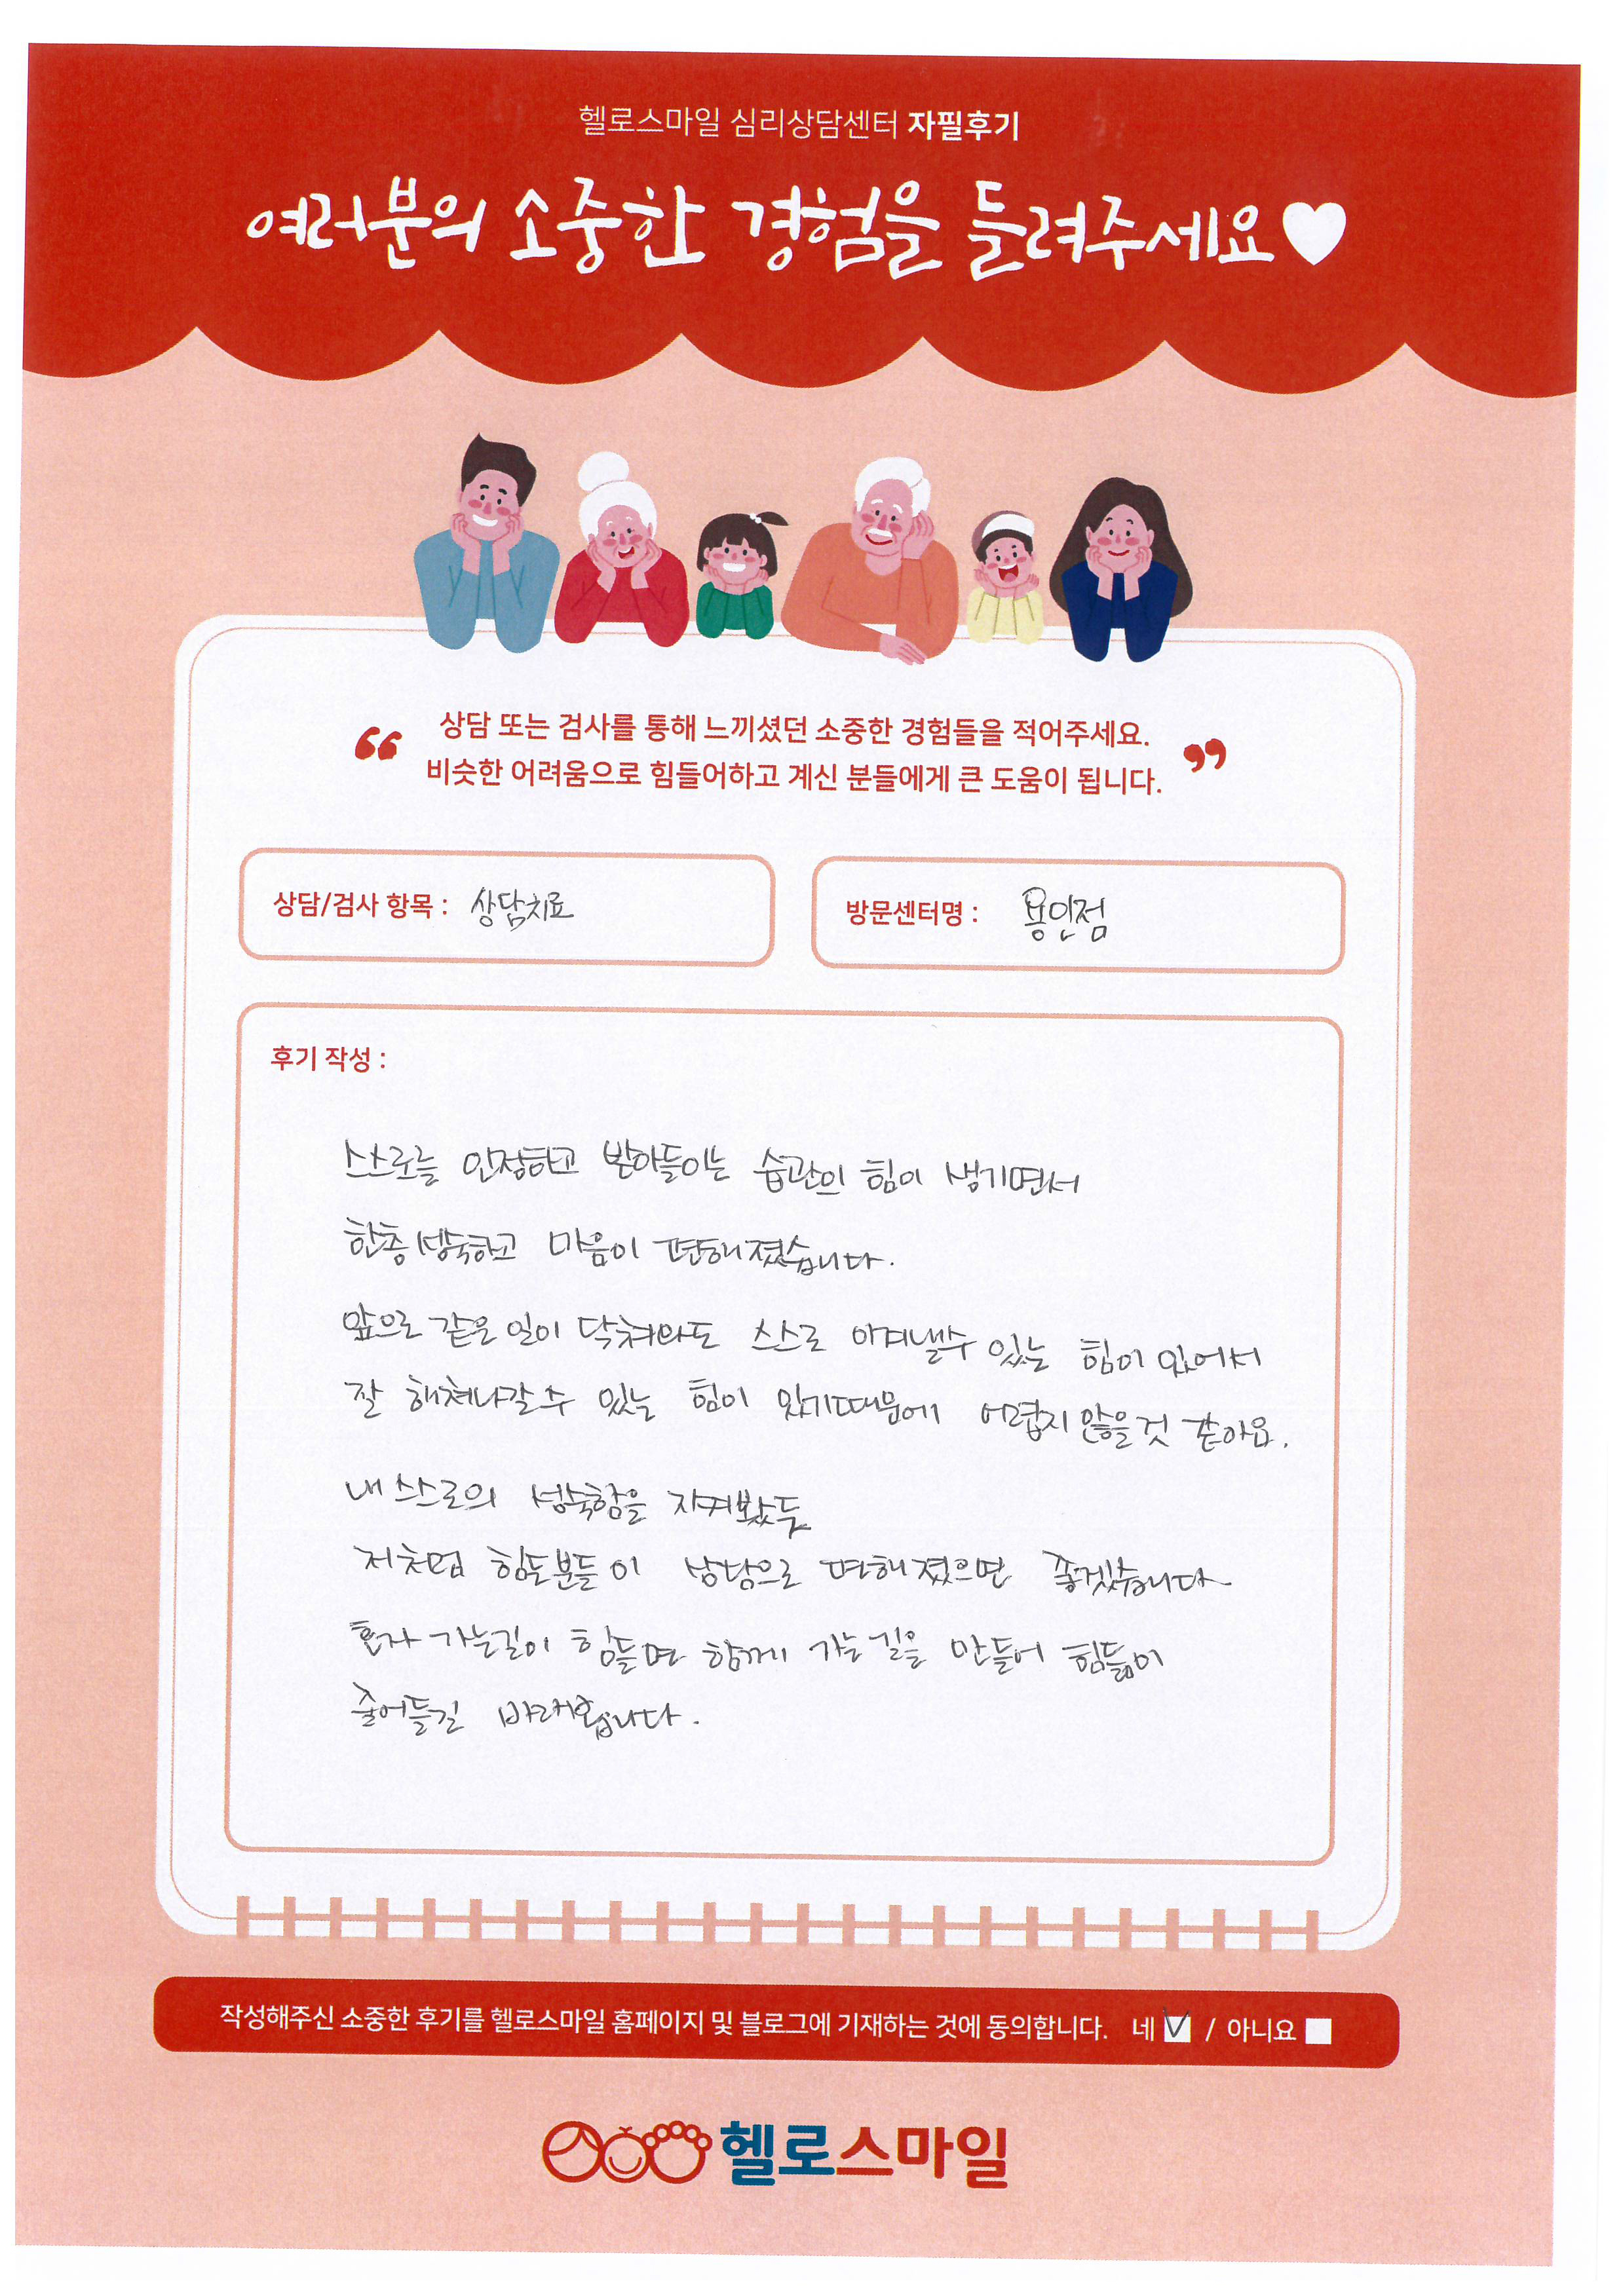 헬로스마일 심리상담센터 자필후기
여러분의 소중한 경험을 들려주세요♥
“ 상담 또는 검사를 통해 느끼셨던 소중한 경험들을 적어주세요.
비슷한 어려움으로 힘들어하고 계신 분들에게 큰 도움이 됩니다. ”
상담/검사 항목 : 상담치료
방문센터명 : 용인점
후기 작성 :
스스로를 인정하고 받아들이는 습관의 힘이 생기면서
한층 성숙하고 마음이 편해졌습니다.
앞으로 같은 일이 닥쳐와도 스스로 이겨낼수 있는 힘이 있어서
잘 해쳐나갈 수 있는 힘이 있기때문에 어렵지 않을것 같아요.
내 스스로의 성숙함을 지켜봤듯
저처럼 힘든분들이 상담으로 편해졌으면 좋겠습니다
혼자 가는길이 힘들면 함께 가는 길을 만들어 힘듦이
줄어들길 바래봅니다.
작성해주신 소중한 후기를 헬로스마일 홈페이지 및 블로그에 기재하는 것에 동의합니다. 네 ☑ / 아니요 ☐
헬로스마일